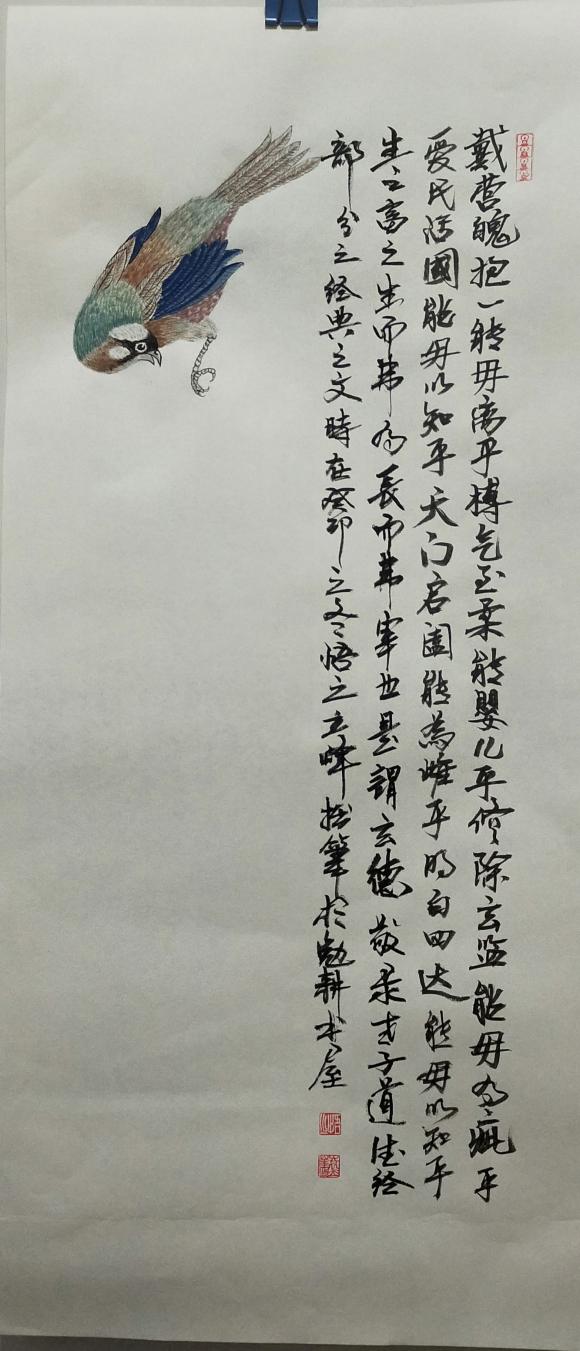 戴营魄抱一能毋离乎槫气至柔能婴儿乎修除玄监能毋为疵乎
爱民活國能毋以知乎天门启阖能為雌乎明白四达能毋以知乎
生之畜之生而弗为長而弗宰也是謂玄德敬录老子道德经
部分之经典之文時在癸卯之冬悟之立峰拙筆於勉耕书屋